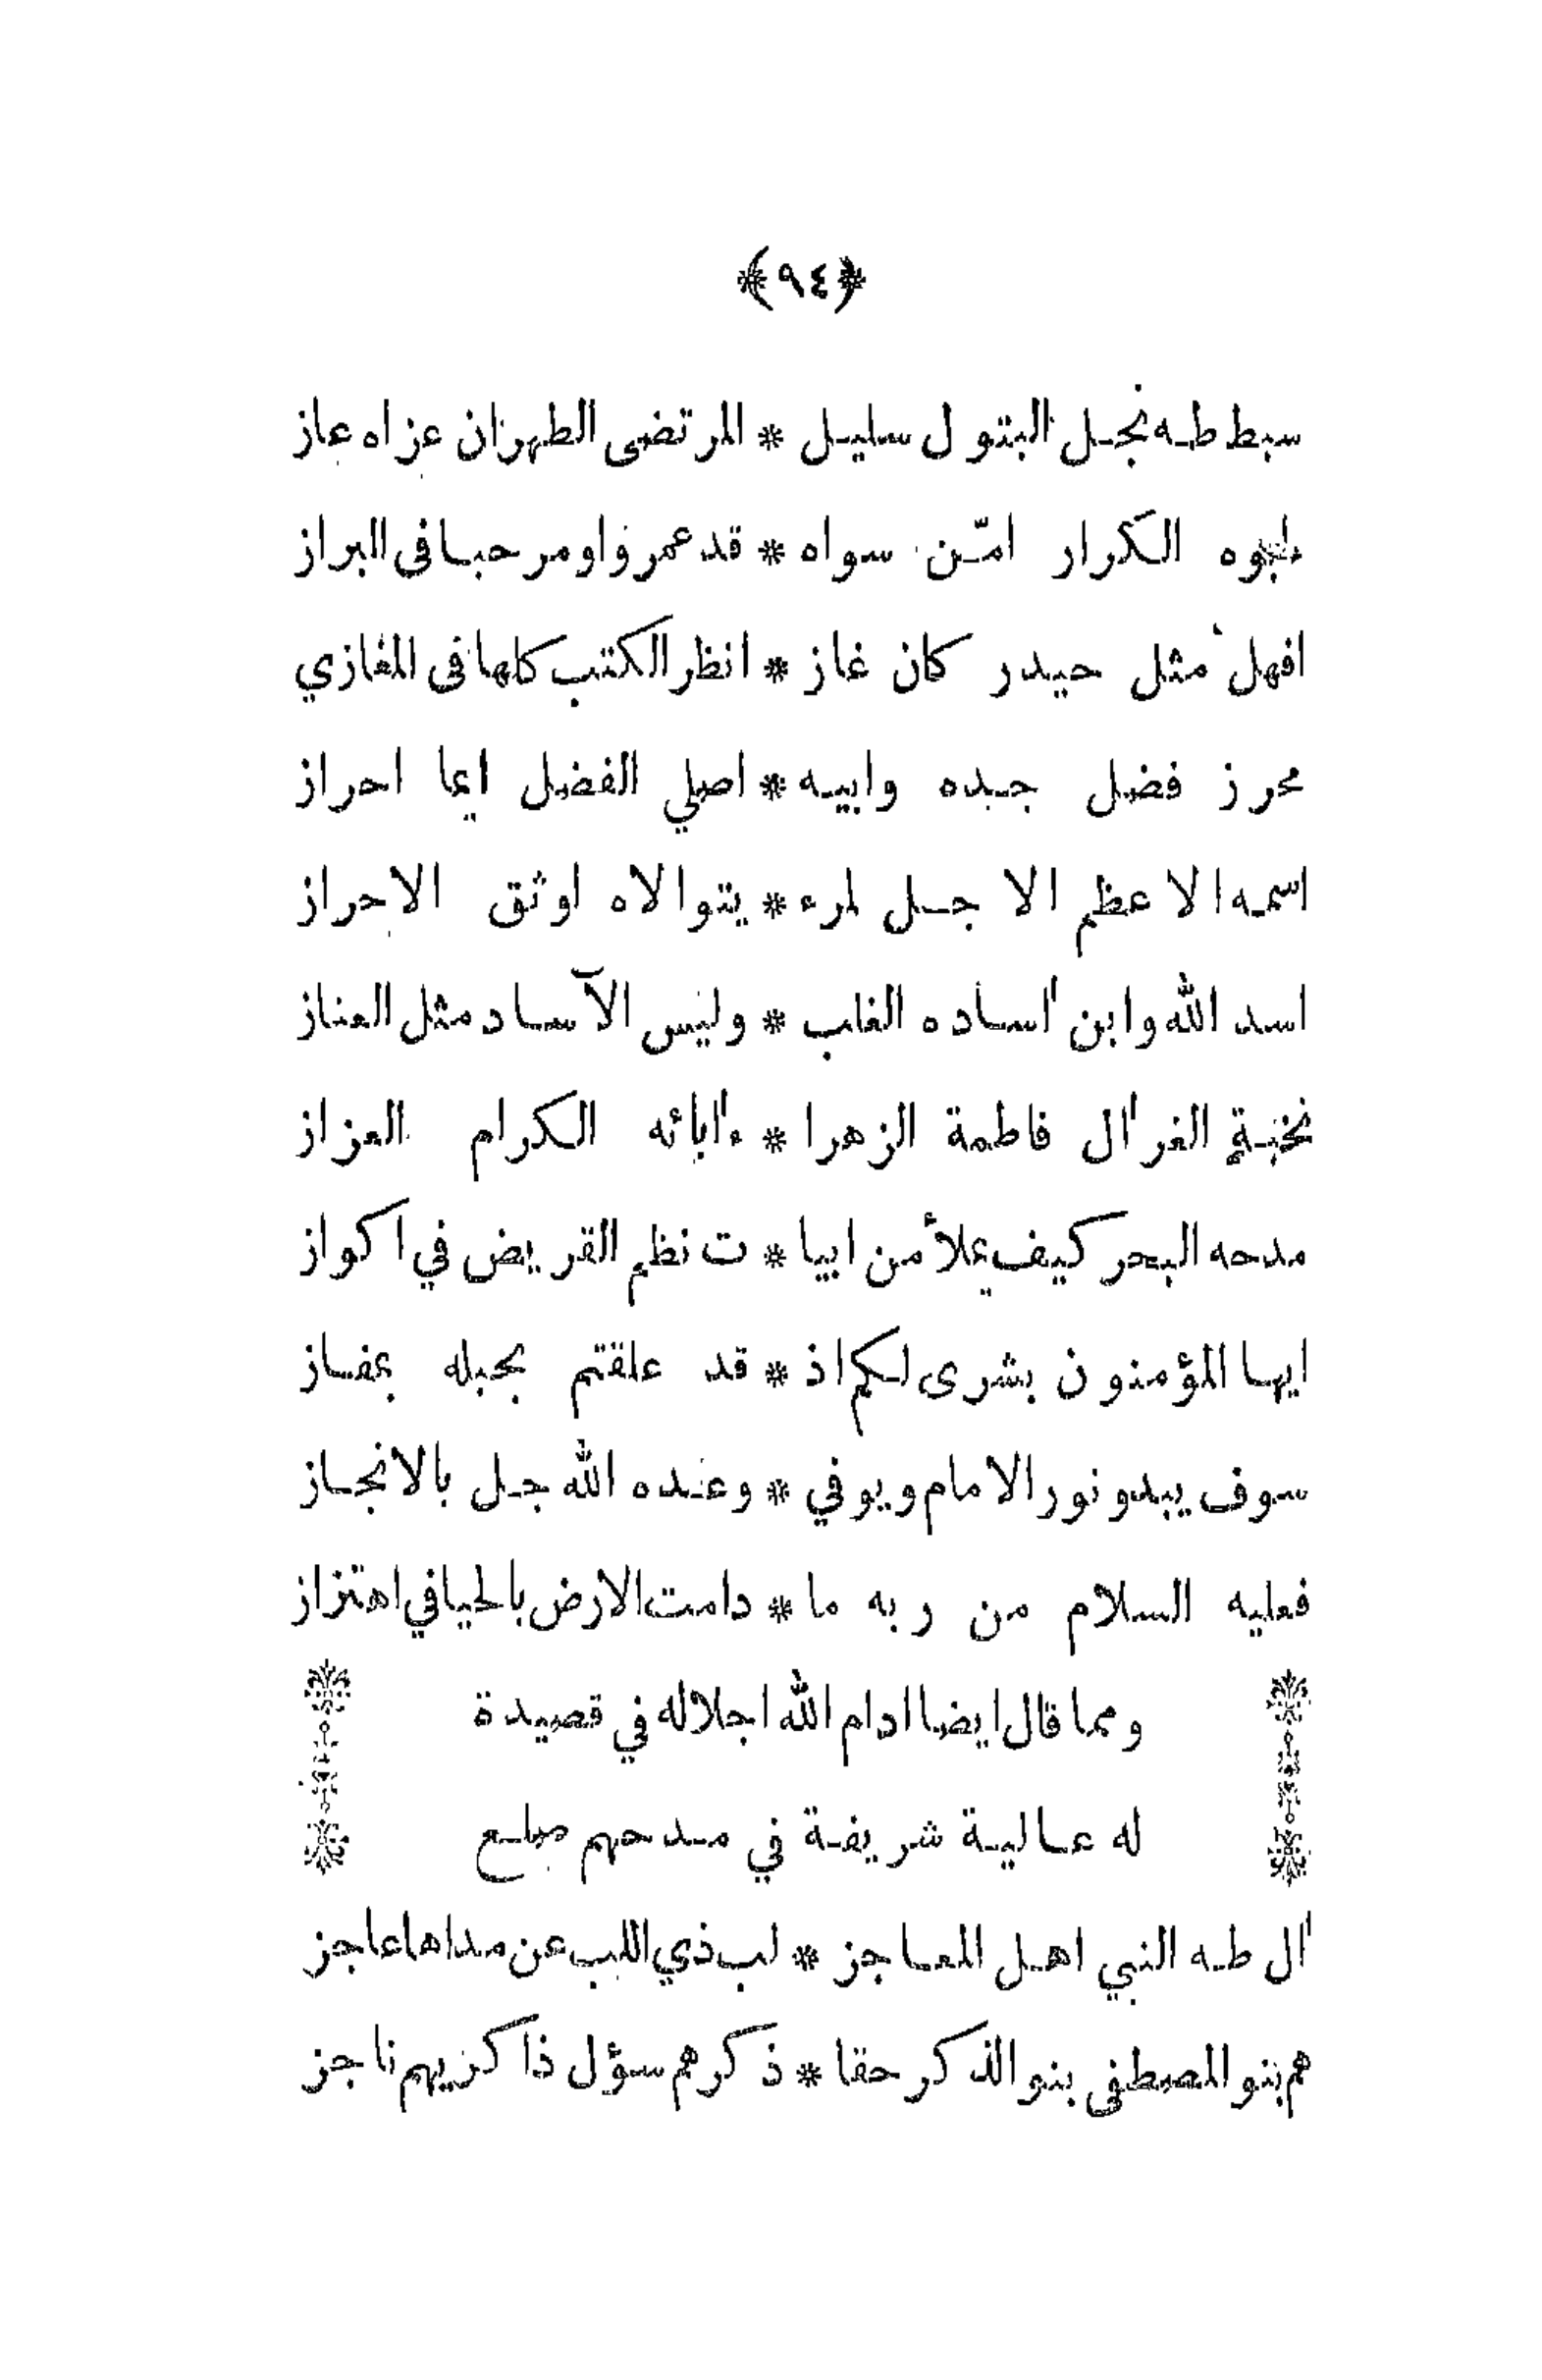 ﴿٩٤﴾
سبط طه نجل البتول سليل * المرتضى الطهران عزاه عاز
ابوه الكرار امّن سواه * قد عمروا ومرحبا فى البراز
افهل مثل حيدر كان غاز * انظر الكتب كلها فى المغازي
محرز فضل جده وابيه * اصلي الفضل ايما احراز
اسمه الاعظم الاجل لمرء * يتوالاه اوثق الاحراز
اسد الله وابن اساده الغلب * وليس الآساد مثل العناز
نخبة الغر ال فاطمة الزهرا * ء ابائه الكرام العزاز
مدحه البحر كيف يملأ من ابيا * ت نظم القريض في اكواز
ايها المؤمنون بشرى لكم اذ * قد علقتم بحبله بمفاز
سوف يبدو نور الامام ويوفي * وعده الله جل بالانجاز
فعليه السلام من ربه ما * دامت الارض بالحيا في اهتزاز
ومما قال ايضا ادام الله اجلاله في قصيدة
له عالية شريفة في مدحهم صلع
ال طه النبي اهل المعاجز * لب ذي اللب عن مداها عاجز
هم بنو المصطفى بنو الذكر حقا * ذكرهم سؤل ذاكريهم ناجز